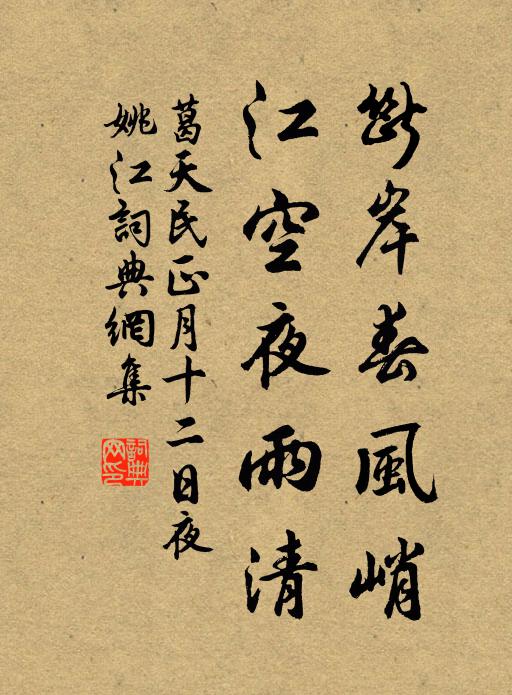 斷岸春風峭
江空夜雨清
葛天民正月十二日夜
姚江詞典網集
詞典網印